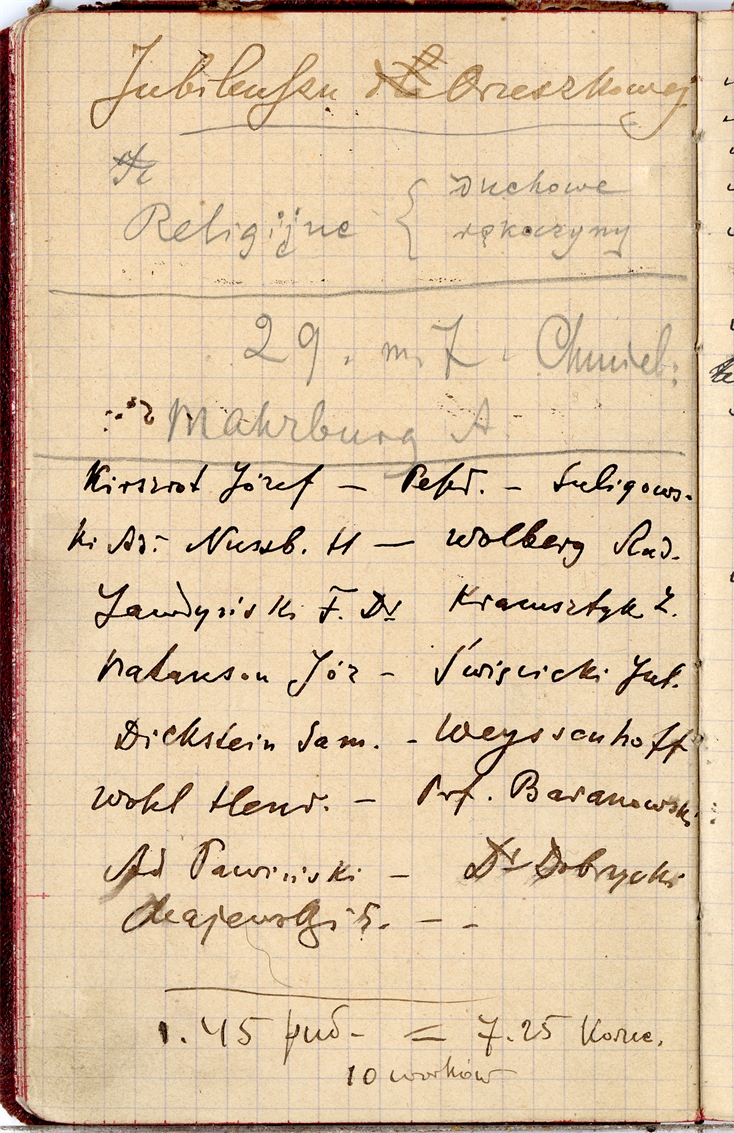 Jubileuszu Orzeszkowej
Religijne { Duchowe
rękoczyny
29. m. 7. Chmiel:
Mahrburg A.
Kirszrot Józef – – Suligows-
ki Ad: Nussb. H – Wolberg
F. Dr Kramsztyk Z.
Natanson Józ – Święcicki Jul.
Dickstein Sam. - Weyssenhoff
Wohl Henr. – Prof. Baranowski
Ad Pawiński – Dr Dobrycki
Majewski E. – -
1.45 pud - = 7.25 Korc.
10 worków